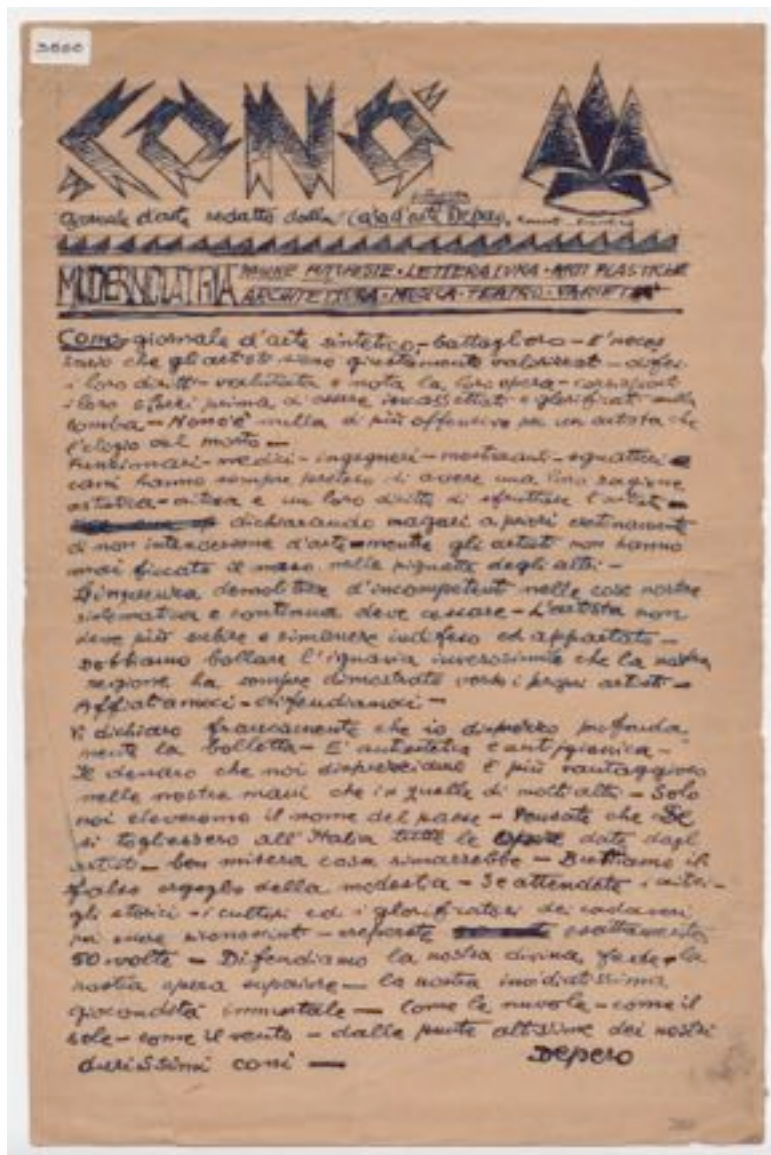 3860
CONO
giornale d'arte redatto dalla Casa d'arte Depero,
MODERNOLATRIA
LETTERATURA - ARTI PLASTICHE
ARCHITETTURA - MUSICA - TEATRO - VARIETÀ
Cono - giornale d'arte sintetico - battagliero - E' neces
sario che gli artisti siano giustamente valorizzati - difesi
i loro diritti - valutata e nota la loro opera -
i loro sforzi prima di essere incassettati e glorificati sulla
tomba - Non c'è nulla di più offensivo per un artista che
l'elogio sul morto -
Funzionari - medici - ingegneri -
cani hanno sempre preteso di avere una loro ragione
artistica - critica e un loro diritto di sfruttare l'artista -
dichiarando magari a priori
di non intendersene d'arte - mentre gli artisti non hanno
mai ficcato il naso nelle pignatte degli altri -
demolitrice d'incompetenti nelle cose nostre
sistematica e continua deve cessare - L'artista non
deve più subire e rimanere indifeso ed appartato -
Dobbiamo bollare l'ignavia inverosimile che la nostra
regione ha sempre dimostrato verso i propri artisti -
Affiatiamoci - difendiamoci -
Vi dichiaro francamente che io disprezzo profonda
mente la bolletta - E' antiestetica e antigienica -
Il denaro che noi disprezziamo è più vantaggioso
nelle nostre mani che in quelle di molti altri - Solo
noi eleveremo il nome del paese - Pensate che Se
si togliessero all'Italia tutte le opere date dagli
artisti - ben misera cosa rimarrebbe - Buttiamo il
falso orgoglio della modestia - Se attendete i critici -
gli storici - i cultori ed i glorificatori dei cadaveri
per essere riconosciuti - creperete esattamente
50 volte - Difendiamo la nostra divina fede - la
nostra opera superiore - la nostra invidiatissima
giocondità immortale - Come le nuvole - come il
sole - come il vento - dalle punte altissime dei nostri
durissimi coni -
Depero